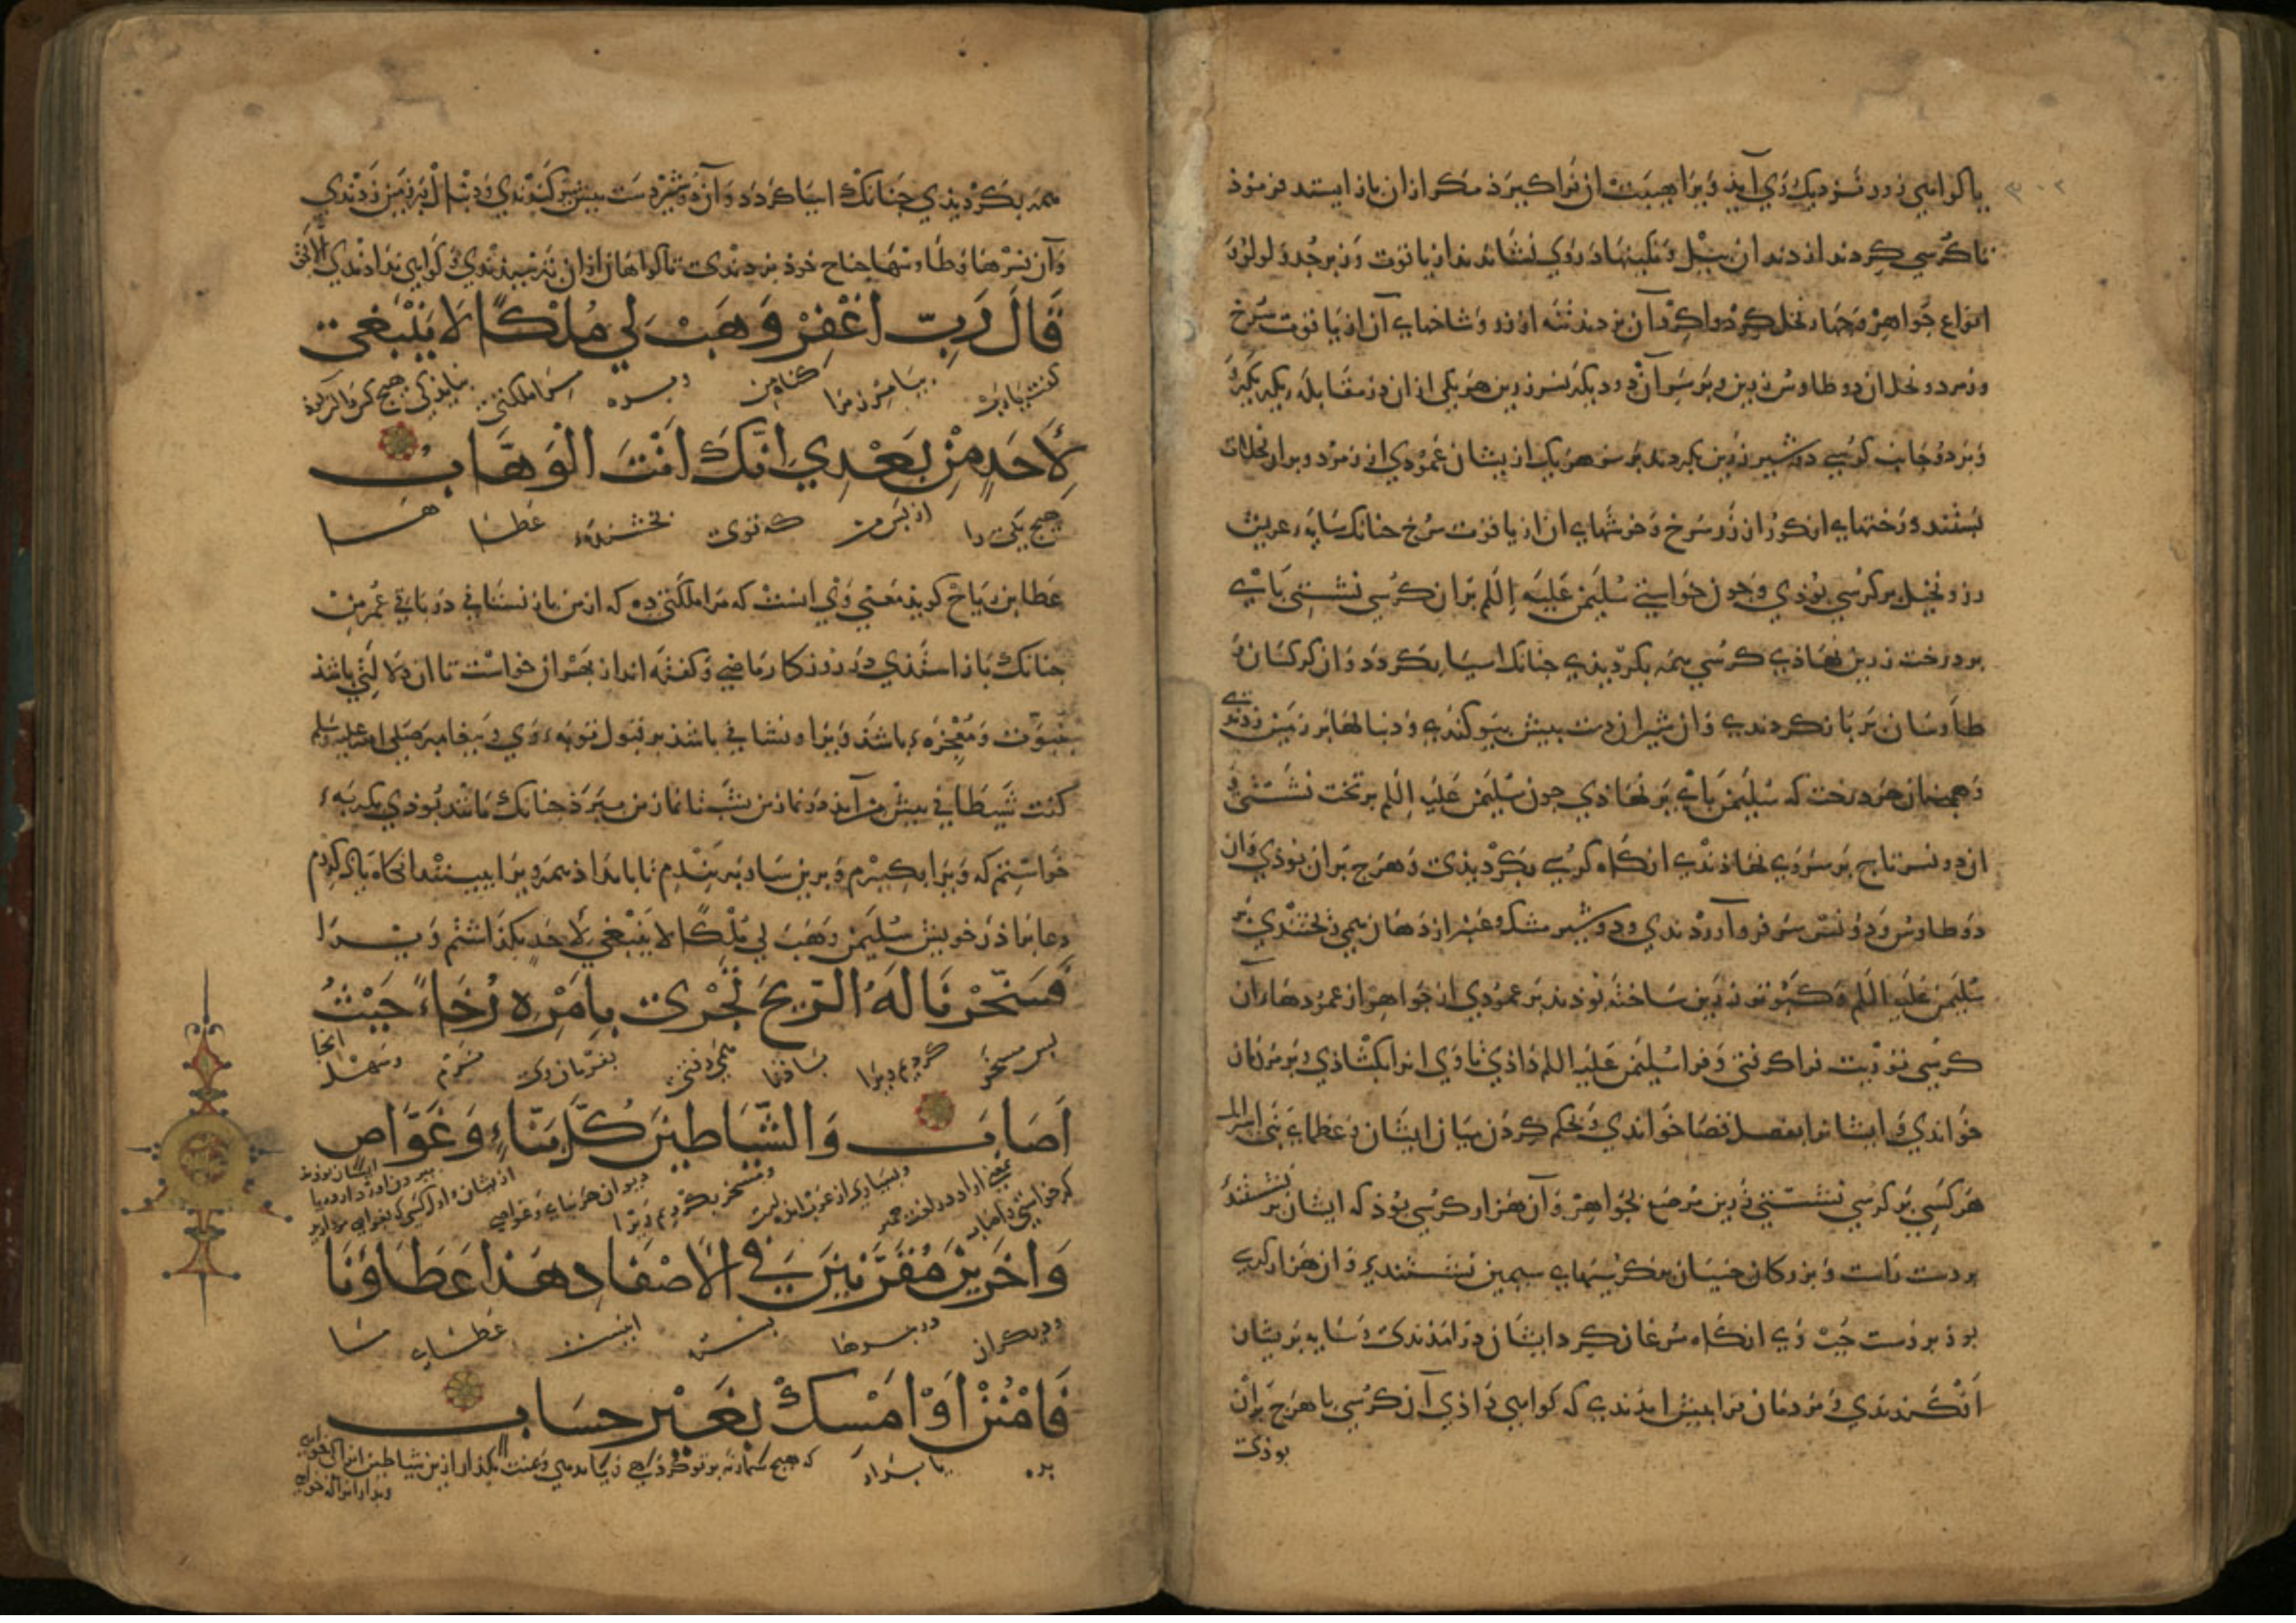 یا کواهی زور نزدیک وی آید ویرا هیبت ان فراکیرذ مکر ازان باز ایستد فرموذ
تا کرسی کردند از دندان بیل و نکینها در وی نشاندند از یاقوت و زبرجد و لولو و
انواع جواهر و جهار نخل کرد واکرد آن بزدند تنه از زر و شاخهای آن از یاقوت سرخ
و زمرد و نخل ان دو طاوس زرین و بر سر آن دو دیکر نسر زرین هر یکی ازان در مقابله دیکر
و بر دو جانب کرسی دو شیر زرین بکردند بر سر هر یک ازیشان عمودی از زمرد و بران نخلات
بستند درختهای انکور از زر سرخ و خوشهای ان از یاقوت سرخ جنانک سایه عریش
رز و نخیل بر کرسی بوذی و جون خواستی سلیمن علیه السلم بران کرسی نشستی بای
بر درخت زرین نهاذی کرسی همه بکردیذی جنانک اسیا بکردد و ان کرکسان و
طاوسان بر باز کردندی و ان شیران دست بیش بیوکندی و دنبالها بر زمین زدندی
و همجنان هر درخت که سلیمن بای بر نهاذی جون سلیمن علیه السلم بر تخت نشستی
ان دو نسر تاج بر سر وی نهاذندی انکاه کرسی بکردیذی و هرج بران بوذی و ان
دو طاوس و دو نسر سر فرو آوردندی و دو شیر مشک و عنبر از دهان می بختندی بر
سلیمن علیه السلم و کبوتر زرین ساخته بوذند بر عموذی از جواهر از عموذهاء آن
کرسی توریت فرا کرفتی و فرا سلیمن علیه السلم داذی تا وی انرا بکشاذی و بر مردمان
خواندی و ایشانرا بفصل قضا خواندی و بحکم کردن میان ایشان و عظماء بنی اسرایل
هر کسی بر کرسی نشستی زرین مرصع بجواهر و آن هزار کرسی بوذ که ایشان بر نشستندی
بر دست راست و بزرکان جنیان بر کرسیهای سیمین نشستندی و ان هزار کرسی
بوذ بر دست جب وی انکاه مرغان کرد ایشان در امذندی و سایه بریشان
افکندندی و مردمان فرا بیش امدندی که کواهی داذی آن کرسی با هرج بران
بوذی
همه بکردیذی جنانک اسیا کردد و آن دو شیر دست بیش بیوکندندی و دنبال بر زمین زدندی
و آن نسرها و طاوسها جناح خوذ بزدندی تا کواهان ازان بترسیذندی و کواهی نداذندی الا بحق
قَالَ رَبِّ اغْفِرْ وَهَبْ لِي مُلْكًا لَا يَنْبَغِي
کفت یا رب بیامرز مرا کناه من و بده مرا ملکتی نبایذ کی هیج کس را
لِأَحَدٍ مِنْ بَعْدِي إِنَّكَ أَنْتَ الْوَهَّابُ
هیج یکی را از بس من که توی بخشنده عطا
عطا بن رباح کوید معنی وی انست که مرا ملکتی ده که از من باز نستانی در باقی عمر من
جنانک باز استذی در روزکار ماضی و کفته اند از بهر ان خواست تا ان دلالتی باشذ
بنبوت و معجزه باشذ ویرا و نشانی باشذ بر قبول توبه وی و بیغامبر صلی الله علیه وسلم
کفت شیطانی بیش من آمذ در نماز من بنشست تا نماز من ببرذ جنانک مانند بوذی بکربه
خواستم که ویرا بکیرم و برین ساریه بندم تا بامداذ همه ویرا ببینند انکاه یاذ کردم
دعا براذر خویش سلیمن وهب لي ملكا لا ينبغي لاحد بکذاشتم ویرا
فَسَخَّرْنَا لَهُ الرِّيحَ تَجْرِي بِأَمْرِهِ رُخَاءً حَيْثُ
بس مسخر کردیم ویرا بادرا می رفتی بفرمان وی نرم و سهل انجا
أَصَابَ وَالشَّيَاطِينَ كُلَّ بَنَّاءٍ وَغَوَّاصٍ
وَآخَرِينَ مُقَرَّنِينَ فِي الْأَصْفَادِ هَذَا عَطَاؤُنَا
و دیکران در بندها بسته اینست عطای ما
فَامْنُنْ أَوْ أَمْسِكْ بِغَيْرِ حِسَابٍ
بده یا بازدار که هیج شمار نه بر تو